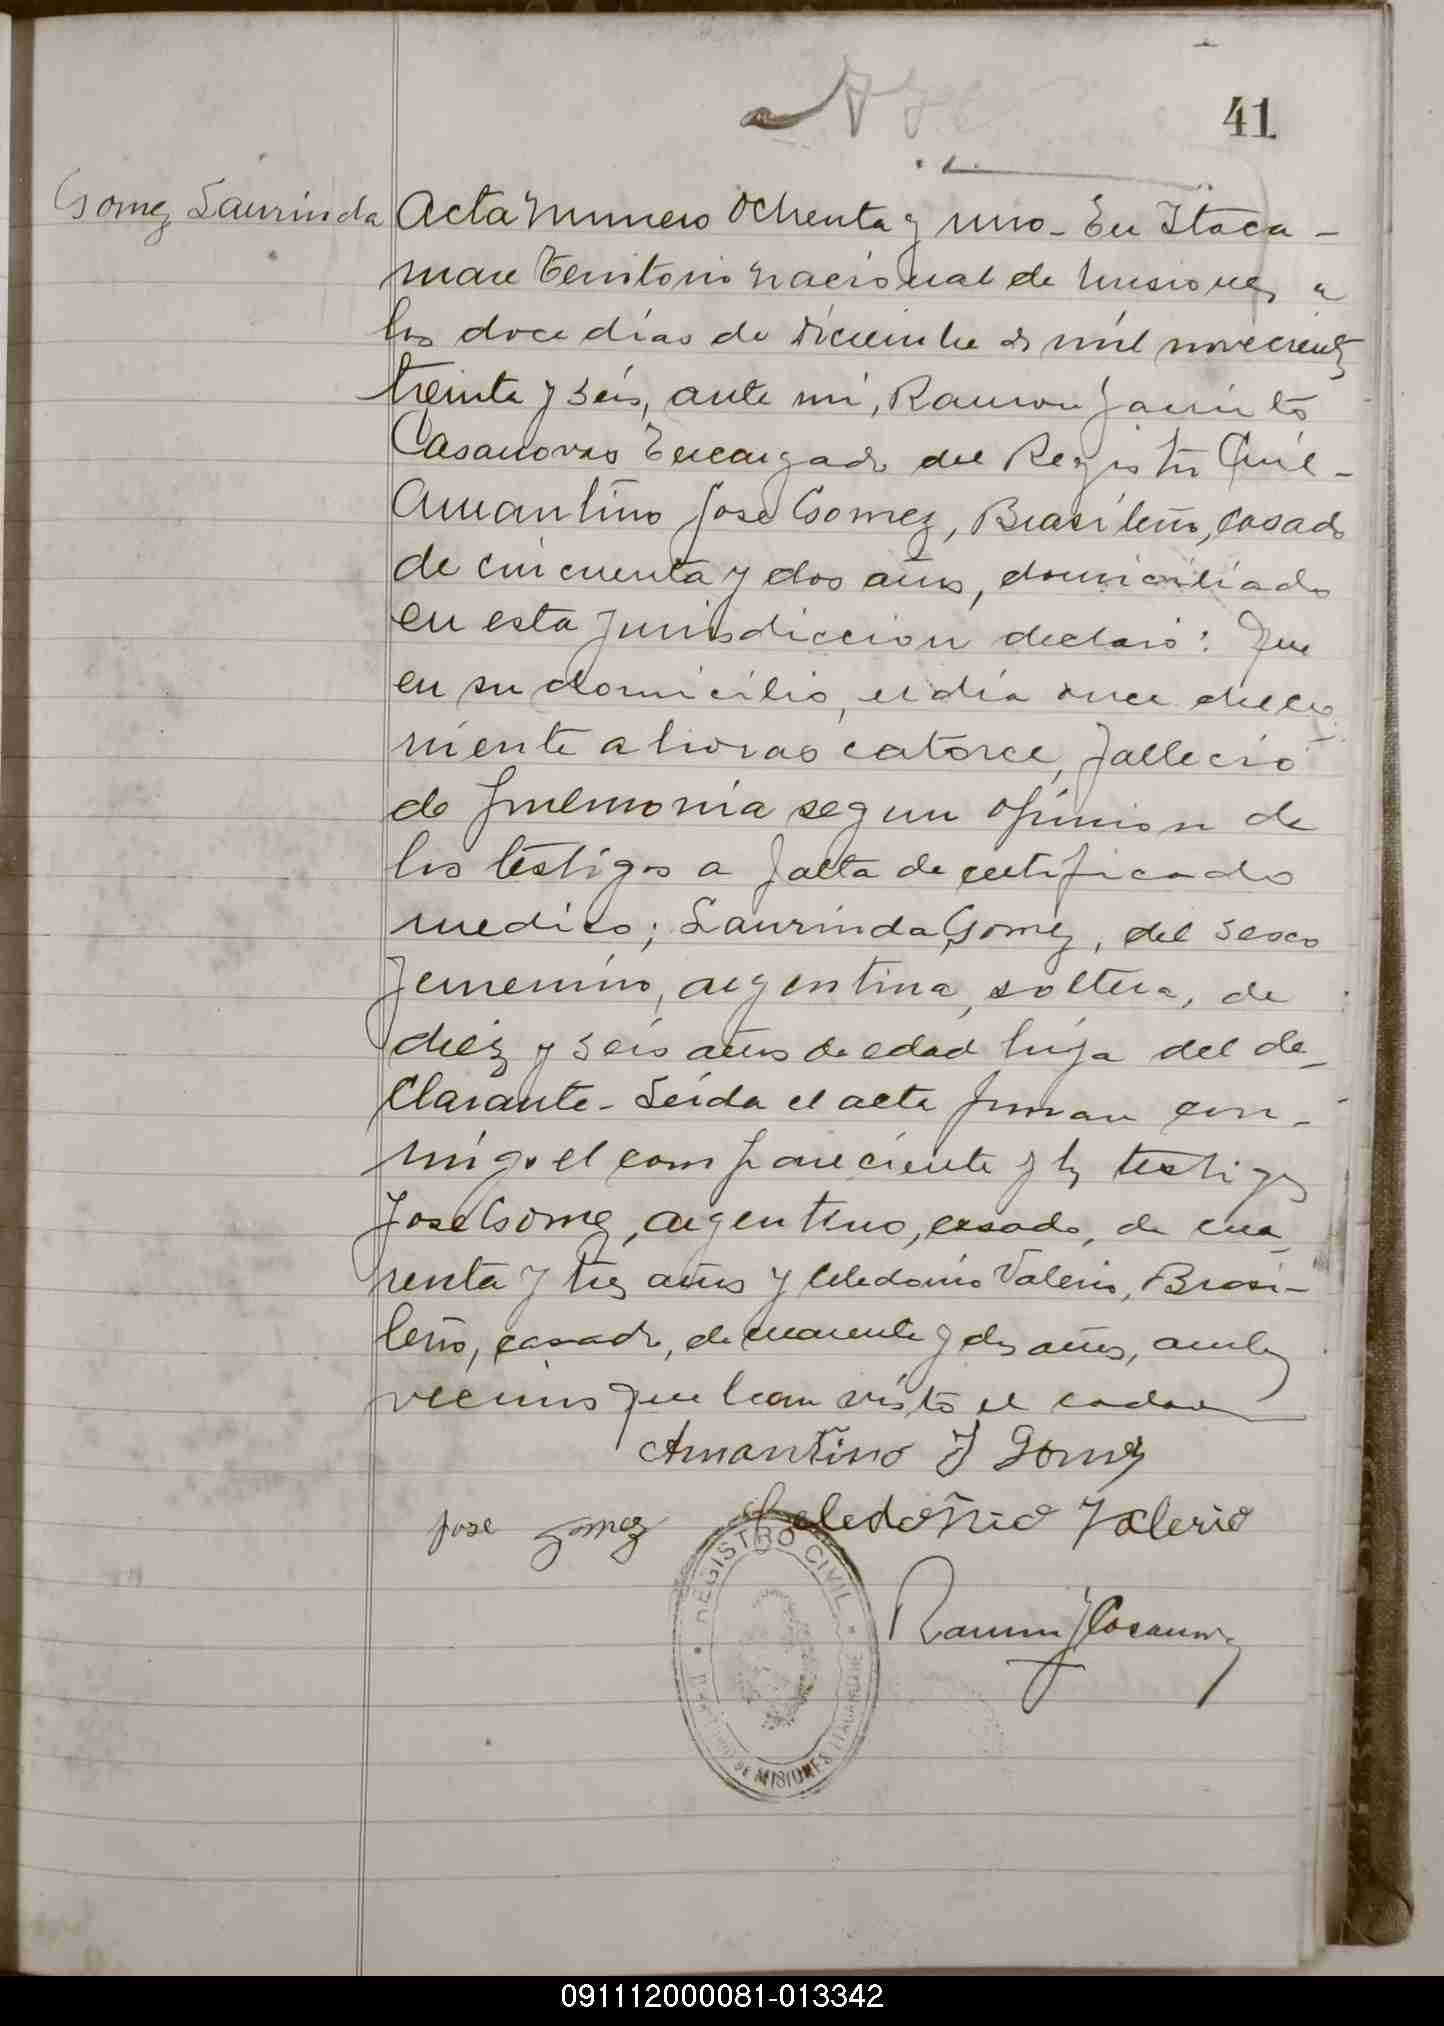 41
Gomez Laurinda
Acta Numero Ochenta y uno - En Itaca -
mare Territorio Nacional de Misiones a
los doce días de diciembre de mil novecientos
treinta y seis, ante mi, Ramon Jacinto
Casanovas Encargado del Registro Civil -
Amantino Jose Gomez, Brasileño, casado
de cincuenta y dos años, domiciliado
en esta jurisdiccion declaró: Que
en su domicilio, el día once del co
rriente a horas catorce, fallecio
de pnemonia segun opinion de
los testigos a falta de certificado
medico; Laurinda Gomez, del sexo
femenino, argentina, soltera, de
diez y seis años de edad hija del de_
clarante - Leída el acta firman con -
migo el compareciente y los testigos
Jose Gomez, argentino, casado, de cua_
renta y tres años y Celedonio Valerio, Brasi -
leño, casado, de cuarenta y dos años, ambos
vecinos que han visto el cadaver
Amantino J Gomez
jose gomez Celedoñio Valerio
Ramon J Casanovas
REGISTRO CIVIL
DE MISIONES ITACARUARE
091112000081-013342